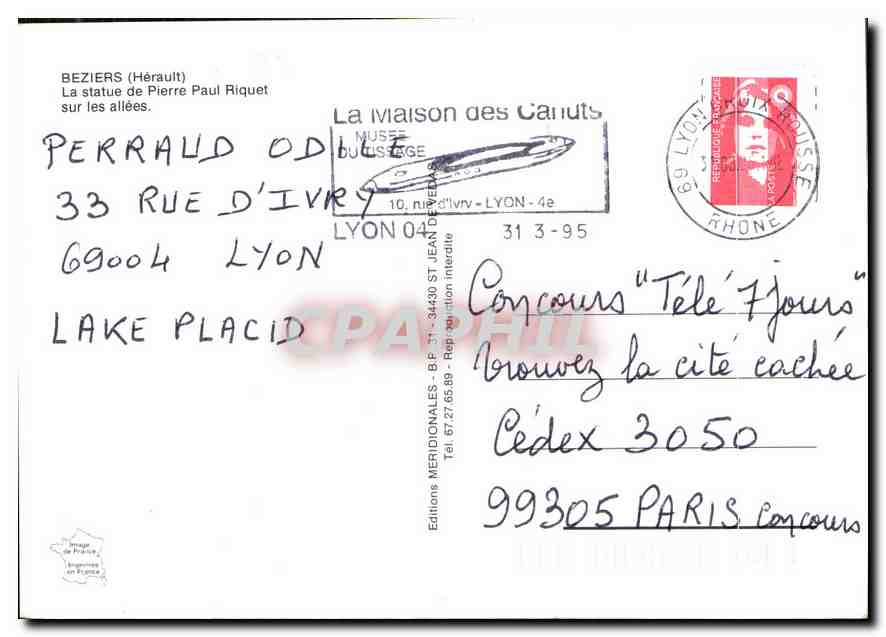 BEZIERS (Hérault)
La statue de Pierre Paul Riquet
sur les allées.
PERRAUD ODILE
33 RUE D'IVRY
69004 LYON
LAKE PLACID
La Maison des Canuts
MUSEE
DU TISSAGE
10, rue d'Ivry - LYON - 4e
LYON 04 31 3-95
REPUBLIQUE FRANÇAISE
LA POSTE
69 LYON CROIX ROUSSE
RHONE
Editions MERIDIONALES - B.P. 31 - 34430 ST JEAN DE VEDAS
Tél. 67.27.65.89 - Reproduction interdite
CPAPHIL
Concours "Télé 7 jours"
trouvez la cité cachée
Cédex 3050
99305 PARIS concours
Image
de France
Imprimée
en France